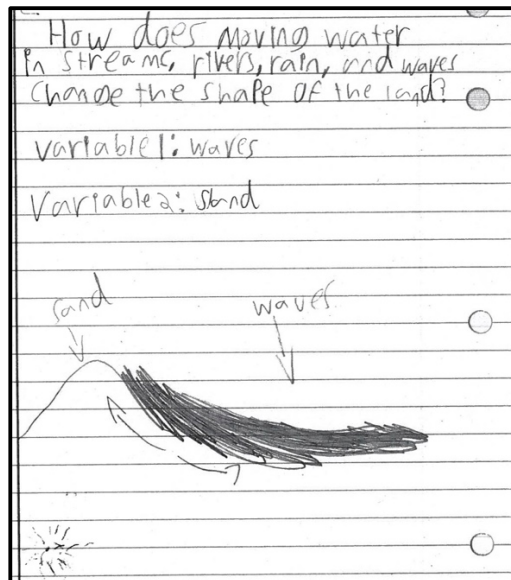 How does moving water
in streams, rivers, rain, and waves
Change the shape of the land?
variable1: waves
Variable2: sand
sand
waves